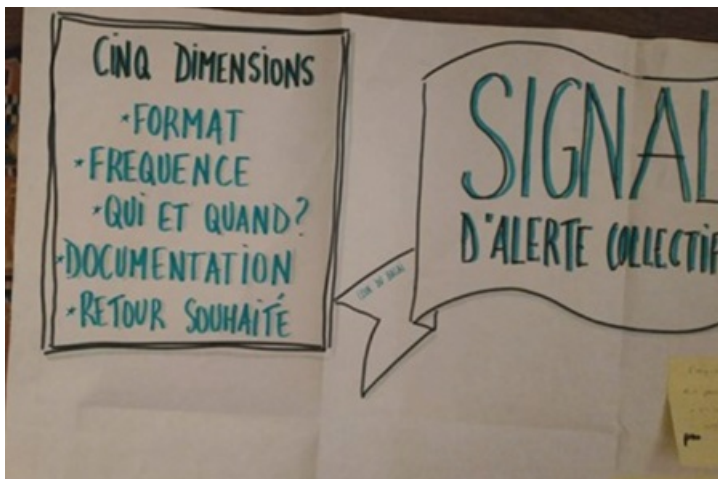 CINQ DIMENSIONS
*FORMAT
*FREQUENCE
*QUI ET QUAND?
*DOCUMENTATION
*RETOUR SOUHAITÉ
SIGNAL
D'ALERTE COLLECTIF